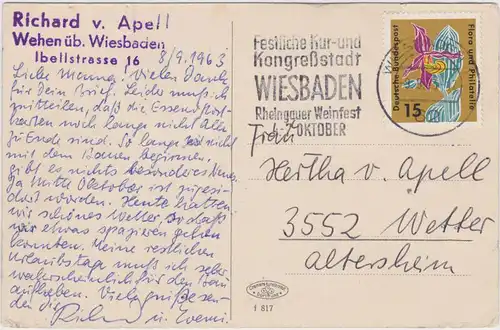 Richard v. Apell
Wehen üb. Wiesbaden
Ibellstrasse 16
8/9. 1963
Liebe Mama! Vielen Dank
für Dein Brief. Leider muß ich
mitteilen, daß die
noch lange nicht Alle
zu Ende sind. So lange nicht
mit dem beginnen,
gibt es nichts besonderes
Mitte Oktober ist
worden. Heute hatten
wir schönes Wetter, so daß
wir etwas spazieren gehen
konnten. Meine restlichen
Urlaubstage muß ich sehr
wahrscheinlich für den Bau
aufheben. Viele Grüße
Richard u.
Festliche Kur- und
Kongreßstadt
WIESBADEN
Rheingauer Weinfest
OKTOBER
Deutsche Bundespost
Flora und Philatelie
15
Frau
Hertha v. Apell
3552 Wetter
Altersheim
f 817